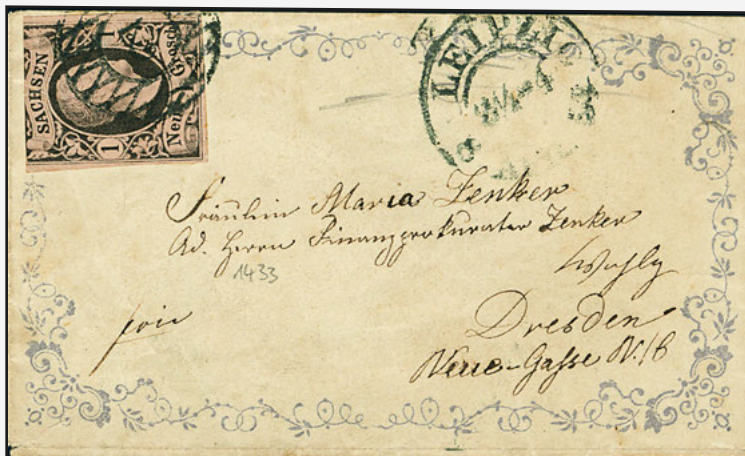 SACHSEN
1
Neu Grosch
LEIPZIG
Fräulein Maria Zenker
Ad. Herrn Finanzprokurator Zenker
1433
Dresden
Neue-Gasse N.